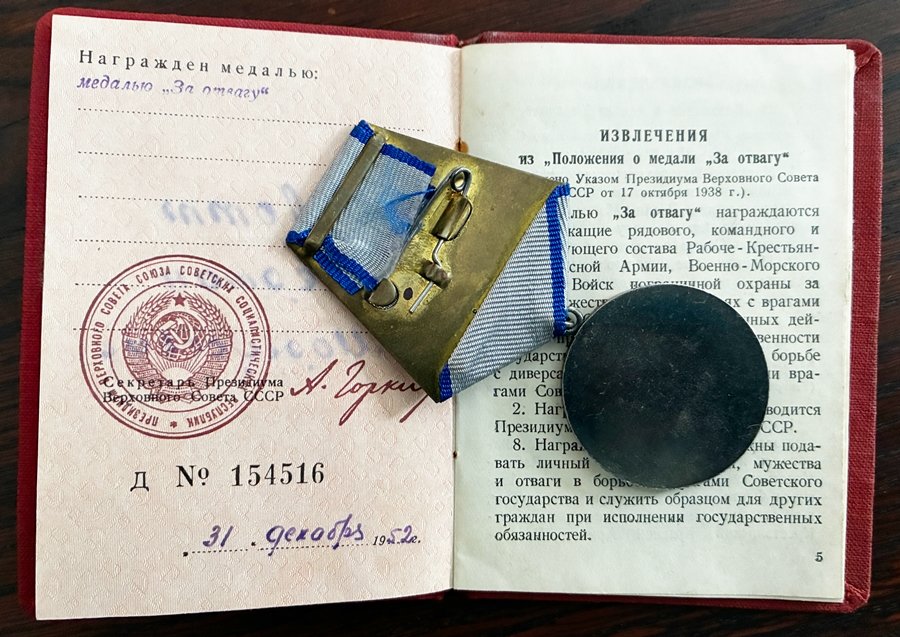 Награжден медалью:
медалью „За отвагу“
ПРЕЗИДИУМ ВЕРХОВНОГО СОВЕТА СОЮЗА СОВЕТСКИХ СОЦИАЛИСТИЧЕСКИХ РЕСПУБЛИК
Секретарь Президиума
Верховного Совета СССР
А. Горкин
Д № 154516
31 декабря 1952 г.
ИЗВЛЕЧЕНИЯ
из „Положения о медали „За отвагу“
Указом Президиума Верховного Совета
ССР от 17 октября 1938 г.).
лью „За отвагу“ награждаются
рядового, командного и
состава Рабоче-Крестьян-
сной Армии, Военно-Морского
Войск пограничной охраны за
с врагами
дей-
борьбе
с вра-
гами
2.
Президиум ССР.
8. подa-
вать личный мужества
и отваги в Советского
государства и служить образцом для других
граждан при исполнении государственных
обязанностей.
5